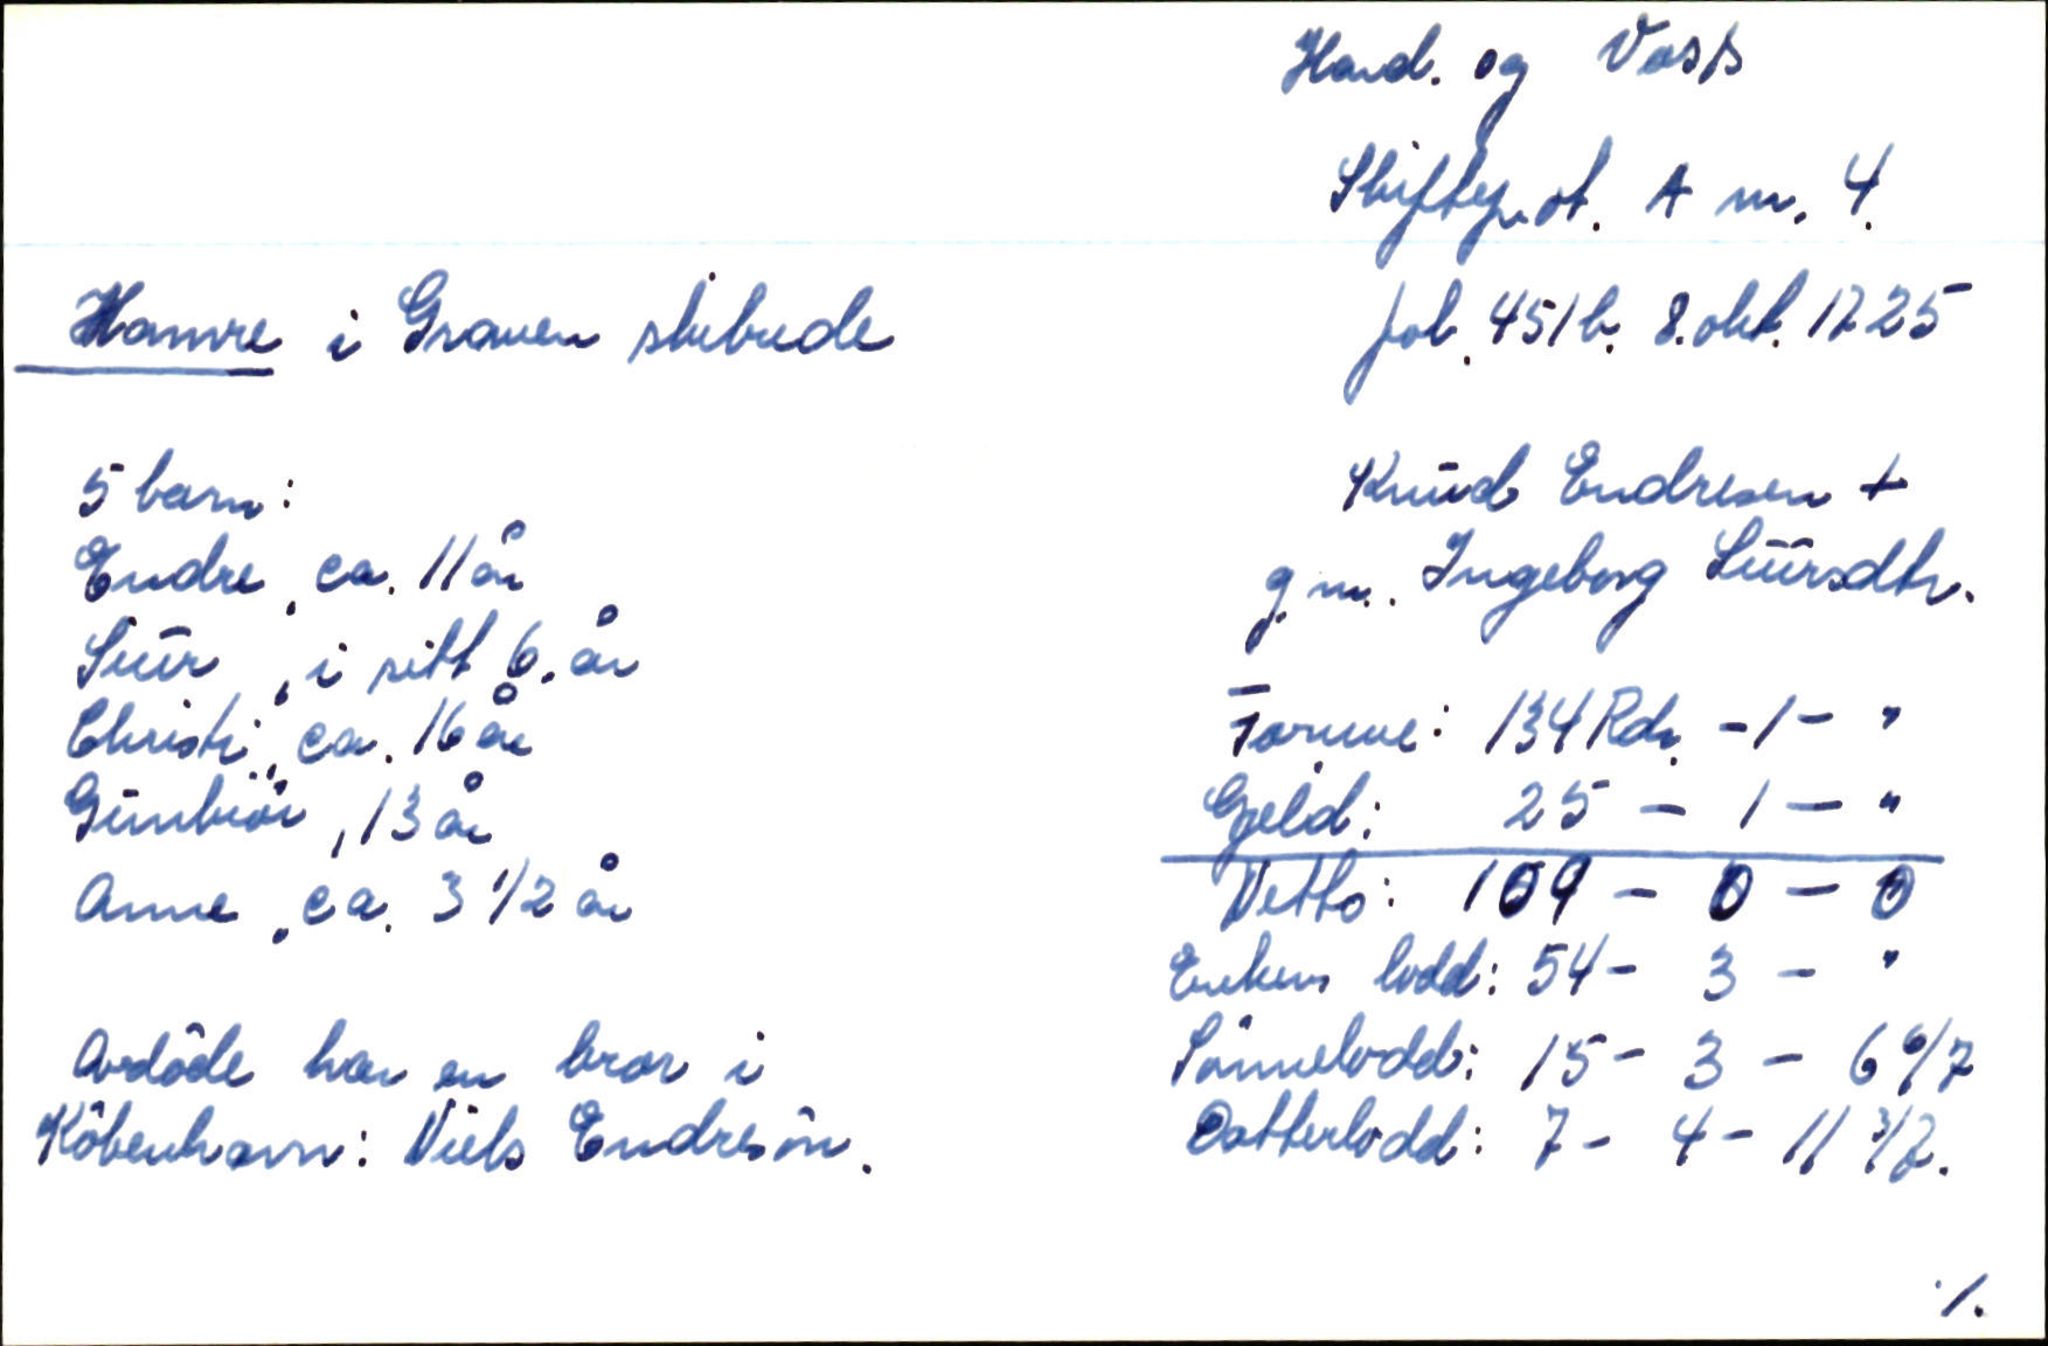 Hard. og Voss
Skifteprot. A nr. 4.
fol. 451b. 8. okt. 1725
Hamre i Graven skibrede
Knūd Endresen +
g.m. Ingeborg Siūrsdtr.
5 barn:
Endre, ca. 11 år
Siūr, i sitt 6. år
Christi, ca. 16 år
Gūnbiör, 13 år
Anne, ca. 3 1/2 år
Formue: 134 Rdr. - 1 - "
Gjeld: 25 - 1 - "
Netto: 109 - 0 - 0
Enkens lodd: 54 - 3 - "
Sönnelodd: 15 - 3 - 6 6/7
Datterlodd: 7 - 4 - 11 3/7.
Avdöde har en bror i
Köbenhavn: Niels Endresön.
./.